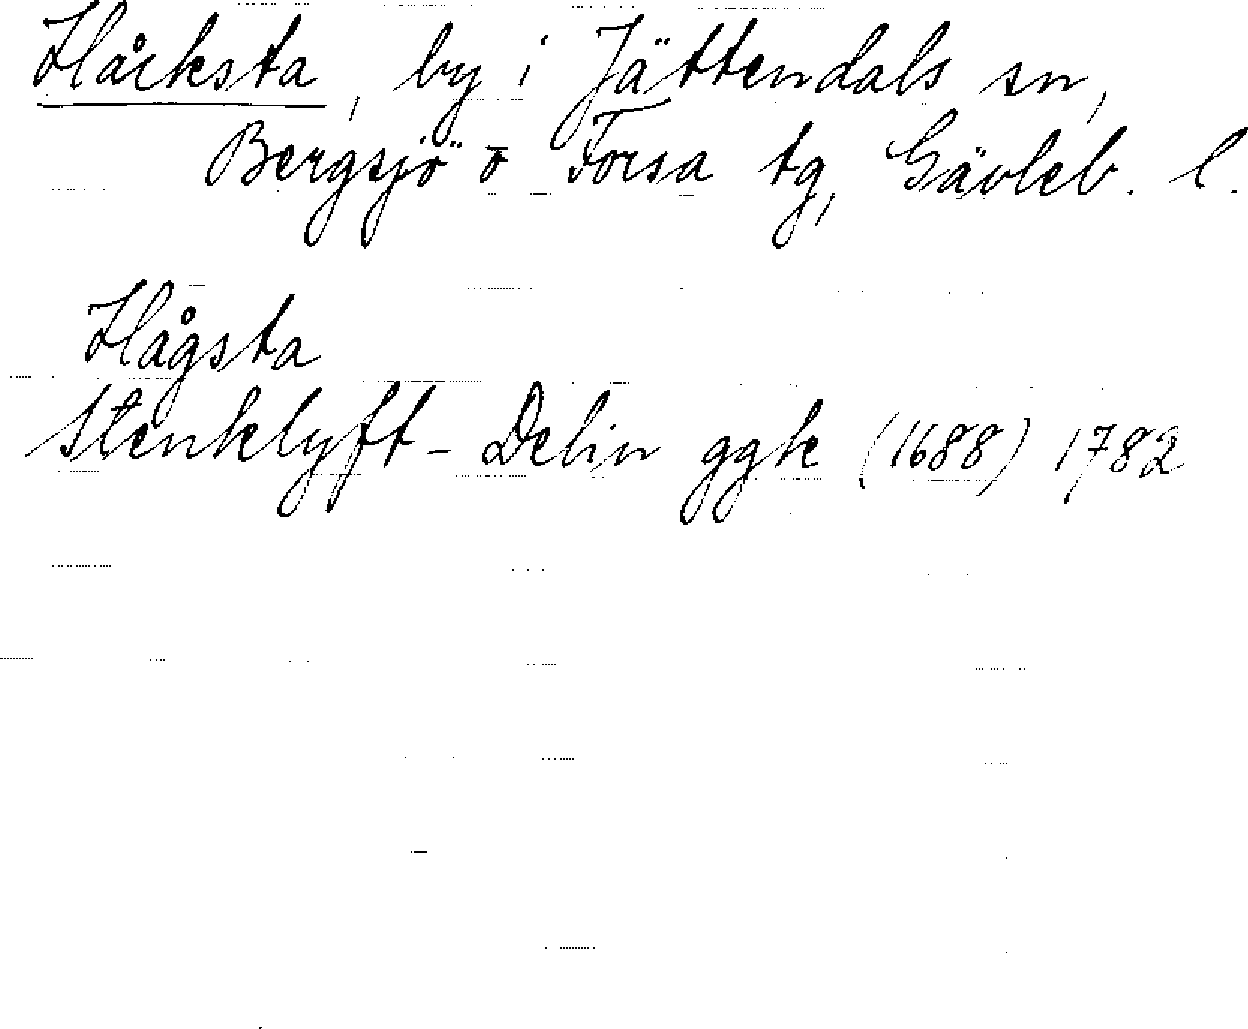 Håcksta, by i Jättendals sn,
Bergsjö o Forsa tg, Gävleb. l.
Hågsta
Stenklyft - Delin ggk (1688) 1782